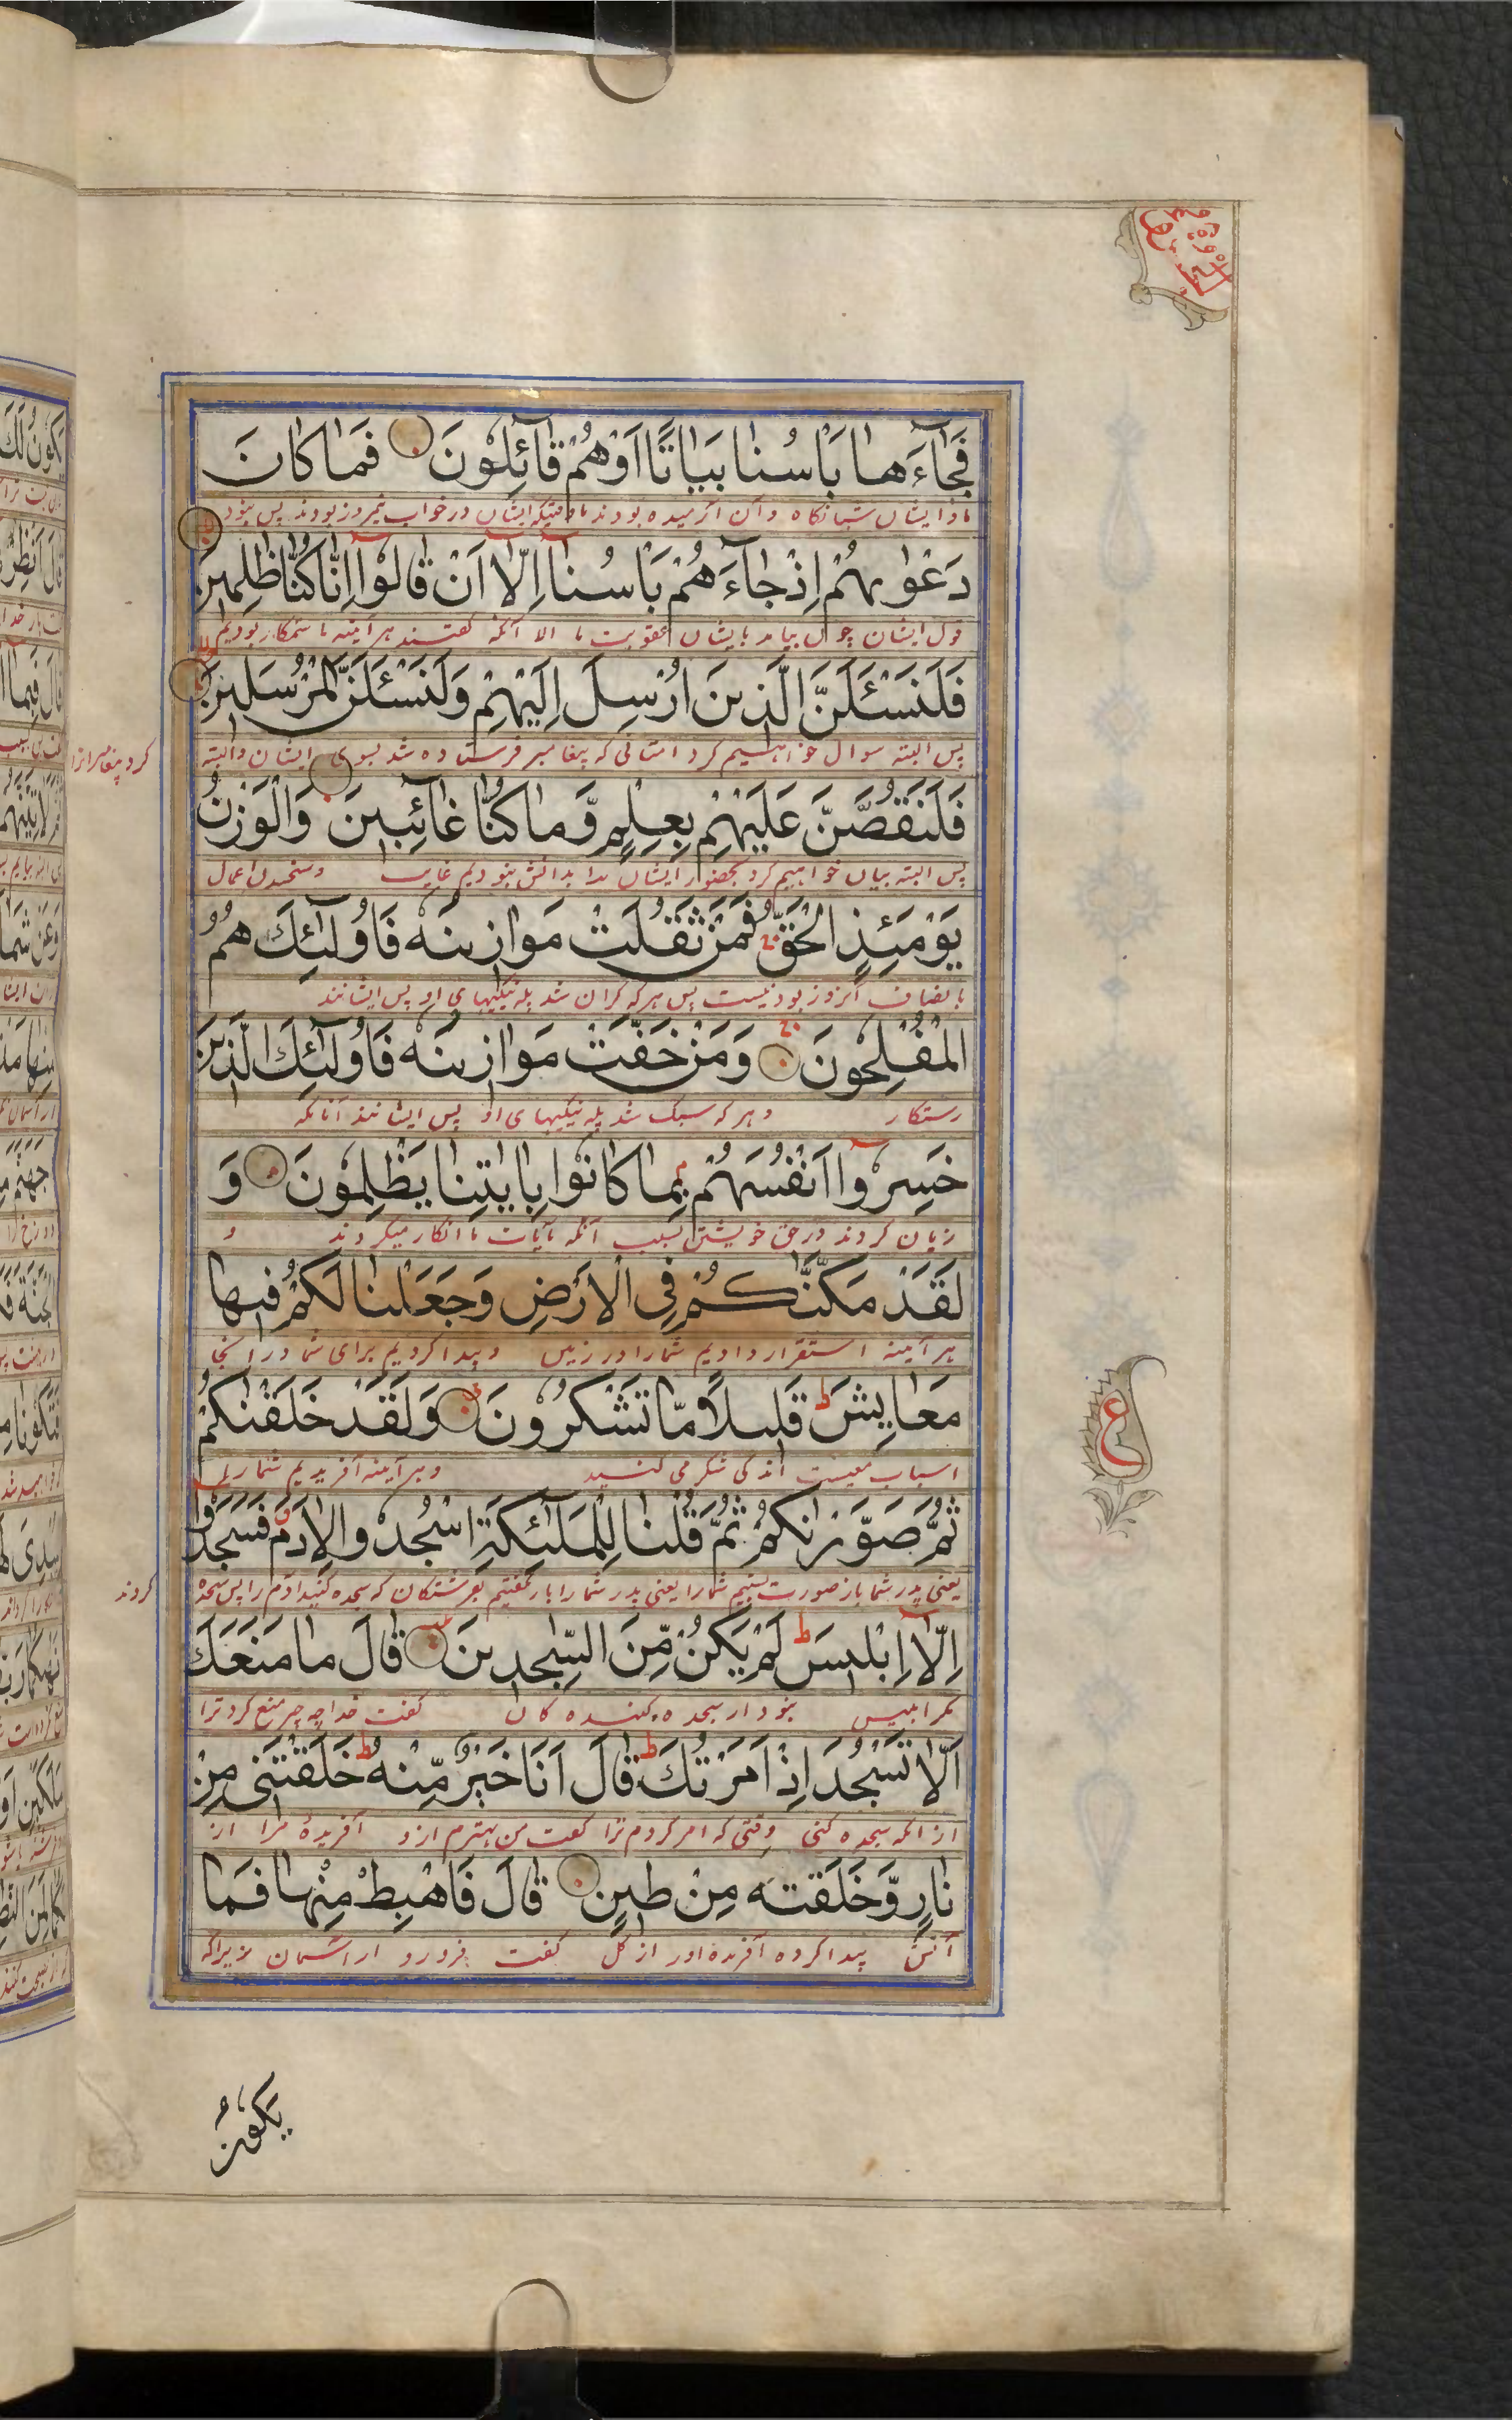 فَجَآءَها بَاْسُنا بَيَاتًا اَوْهُمْ قآئِلُونَ فَما كانَ
ما در ایشان شبانگاه و آن آرمیده بودند یا وقتیکه ایشان در خواب نیمروز بودند پس نبود
دَعْوٰىهُمْ اِذْ جآءَهُمْ بَاْسُنآ اِلّآ اَنْ قالُوٓا اِنّا كُنّا ظٰلِمينَ
قول ایشان چون بیامد بایشان عقوبت ما الا آنکه گفتند هر آینه ما ستمکار بودیم
فَلَنَسْـَٔلَنَّ الَّذينَ اُرْسِلَ اِلَيْهِمْ وَلَنَسْـَٔلَنَّ الْمُرْسَلينَ
پس البته سوال خواهیم کرد امتانی که پیغامبر فرستاده شد بسوی ایشان و البته
کرد پیغامبرانرا
فَلَنَقُصَّنَّ عَلَيْهِمْ بِعِلْمٍ وَّما كُنّا غآئِبينَ وَالْوَزْنُ
پس البته بیان خواهیم کرد بحضور ایشان بدانش نبودیم غایب و سنجیدن اعمال
يَوْمَئِذٍ الْحَقُّ فَمَنْ ثَقُلَتْ مَوازينُهٗ فَاُولٰٓئِكَ هُمُ
بانصاف آنروز بودنیست پس هر که گران شد پله نیکیهای او پس ایشانند
الْمُفْلِحُونَ وَمَنْ خَفَّتْ مَوازينُهٗ فَاُولٰٓئِكَ الَّذينَ
رستکار و هر که سبک شد پله نیکیهای او پس ایشانند آنانکه
خَسِرُوٓا اَنْفُسَهُمْ بِما كانُوا بِاٰيٰتِنا يَظْلِمُونَ وَ
زیان کردند در حق خویشتن بسبب آنکه بآیات ما انکار میکردند و
لَقَدْ مَكَّنّٰكُمْ فِى الْاَرْضِ وَجَعَلْنا لَكُمْ فيها
هر آینه استقرار دادیم شمارا در زمین و پیدا کردیم برای شما در آنجا
مَعايِشَ ط قَليلًا مّا تَشْكُرُونَ وَلَقَدْ خَلَقْنٰكُمْ
اسباب معیشت اندکی شکر می کنید و هر آینه آفریدیم شمارا
ثُمَّ صَوَّرْنٰكُمْ ثُمَّ قُلْنا لِلْمَلٰٓئِكَةِ اسْجُدُوا لِاٰدَمَ فَسَجَدُوٓا
یعنی پدر شما باز صورت بستیم شمارا یعنی پدر شما را باز گفتیم بفرشتکان که سجده کنید آدم را پس سجده
کردند
اِلّآ اِبْليسَ ط لَمْ يَكُنْ مِّنَ السّٰجِدينَ قالَ ما مَنَعَكَ
مگر ابلیس نبود از سجده کننده کان گفت خدا چه چیز منع کرد ترا
اَلّا تَسْجُدَ اِذْ اَمَرْتُكَ ط قالَ اَنَا خَيْرٌ مِّنْهُ ط خَلَقْتَنى مِنْ
از آنکه سجده کنی وقتی که امر کردم ترا گفت من بهترم ازو آفریدهٔ مرا از
نارٍ وَّخَلَقْتَهٗ مِنْ طينٍ قالَ فَاهْبِطْ مِنْها فَما
آتش پیدا کرده آفریده اورا از گل گفت فرورو از آسمان زیراکه
ع
يَكُونُ